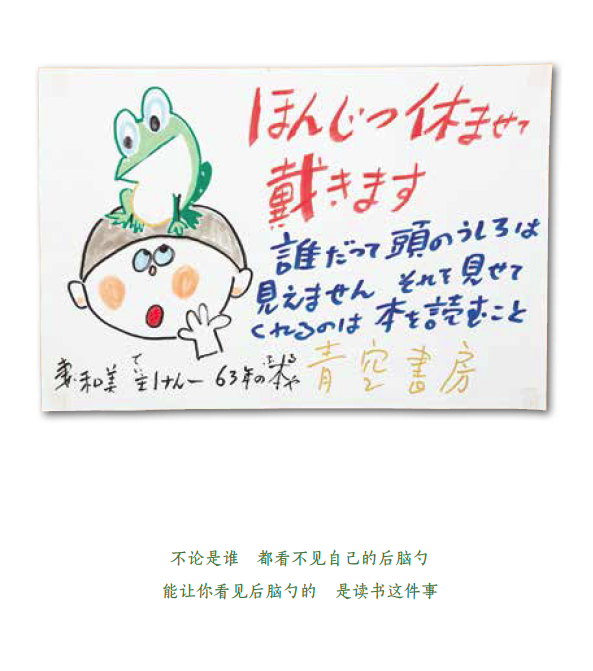 ほんじつ休ませて
戴きます
誰だって頭のうしろは
見えません それを見せて
くれるのは 本を読むこと
妻・和美 主けん一 63年の本や
てい
青空書房
不论是谁 都看不见自己的后脑勺
能让你看见后脑勺的 是读书这件事